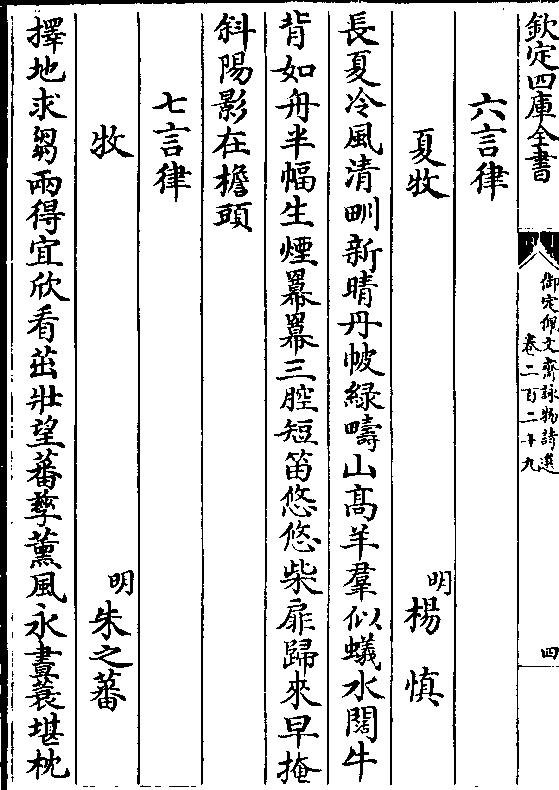 欽定四庫全書
御定佩文齋詠物詩選
卷二百二十九
四
六言律
夏牧
明楊慎
長夏冷風清甽新晴丹岥綠疇山髙羊羣似蟻水闊牛
背如舟半幅生煙羃羃三腔短笛悠悠柴扉歸來早掩
斜陽影在檐頭
七言律
牧
明朱之蕃
擇地求芻兩得宜欣看茁壯望蕃孳薰風永晝蓑堪枕